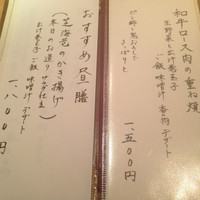 和牛ロース肉の重ね焼
生野菜と出汁巻玉子
ご飯 味噌汁 香の物 デザート
一、五〇〇円
おすすめ昼膳
芝海老のかき揚げ
（本日のお造り サラダ仕立
出汁巻玉子 ご飯 味噌汁 デザート
一、八〇〇円